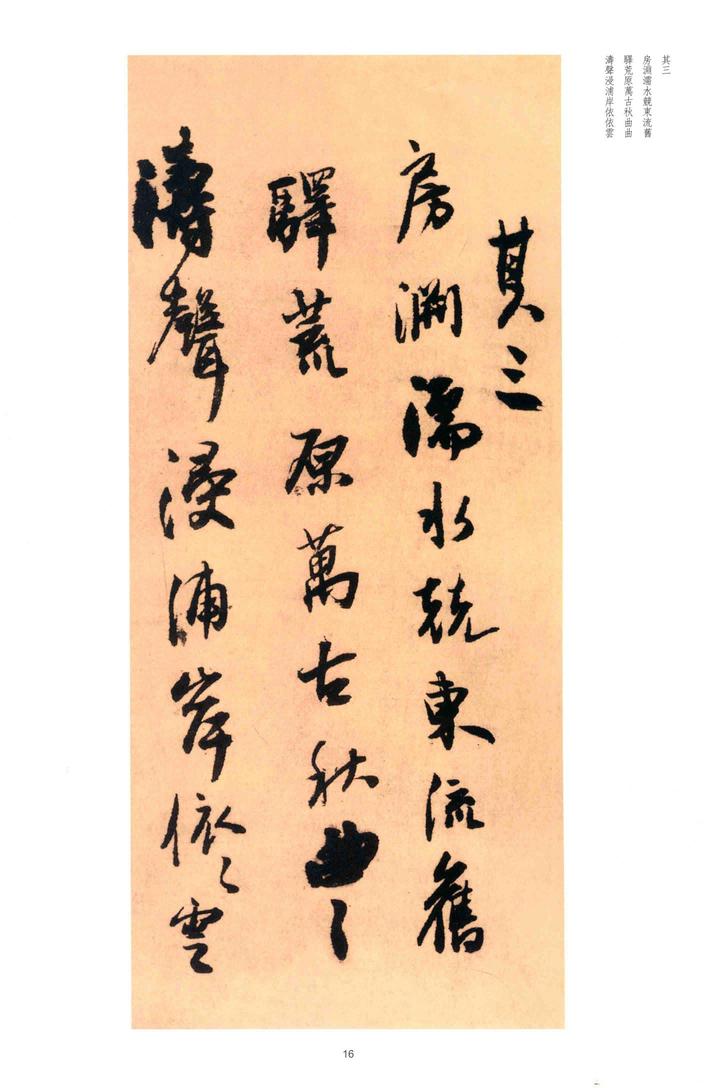 其三
房淵濡水競東流舊
驛荒原萬古秋曲曲
濤聲浸浦岸依依雲
其三
房渊濡水競東流舊
驛荒原萬古秋曲〻
濤聲浸浦岸依〻雲
16